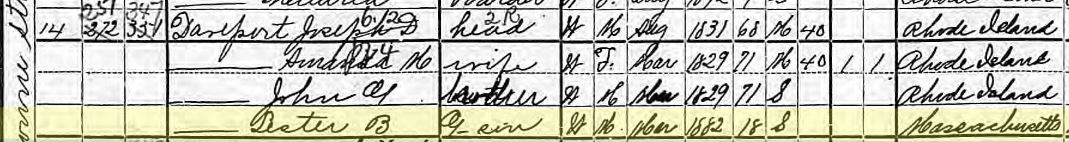 251 347
14 372 351 Davenport Joseph D head W M Aug 1831 68 M 40 Rhode Island
6/20 2 R
—— Amanda M wife W F. Mar 1829 71 M 40 1 1 Rhode Island
—— John G brother W M Mar 1829 71 S Rhode Island
—— Lester B G son W M. Mar 1882 18 S Massachusetts